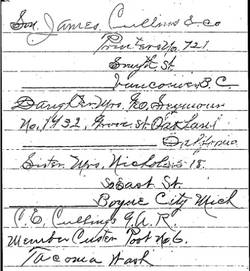 Son, James, Cullins & Co
Printers No. 721
Smyth St
Vancouver B.C.
Daughter Mrs. Geo Seymour
No. 1932, Grove St Oakland
California
Sister Mrs. Nichols 18.
East St.
Boyne City Mich
C. E. Cullings G.A.R.
Member Custer Post No 6.
Tacoma Wash